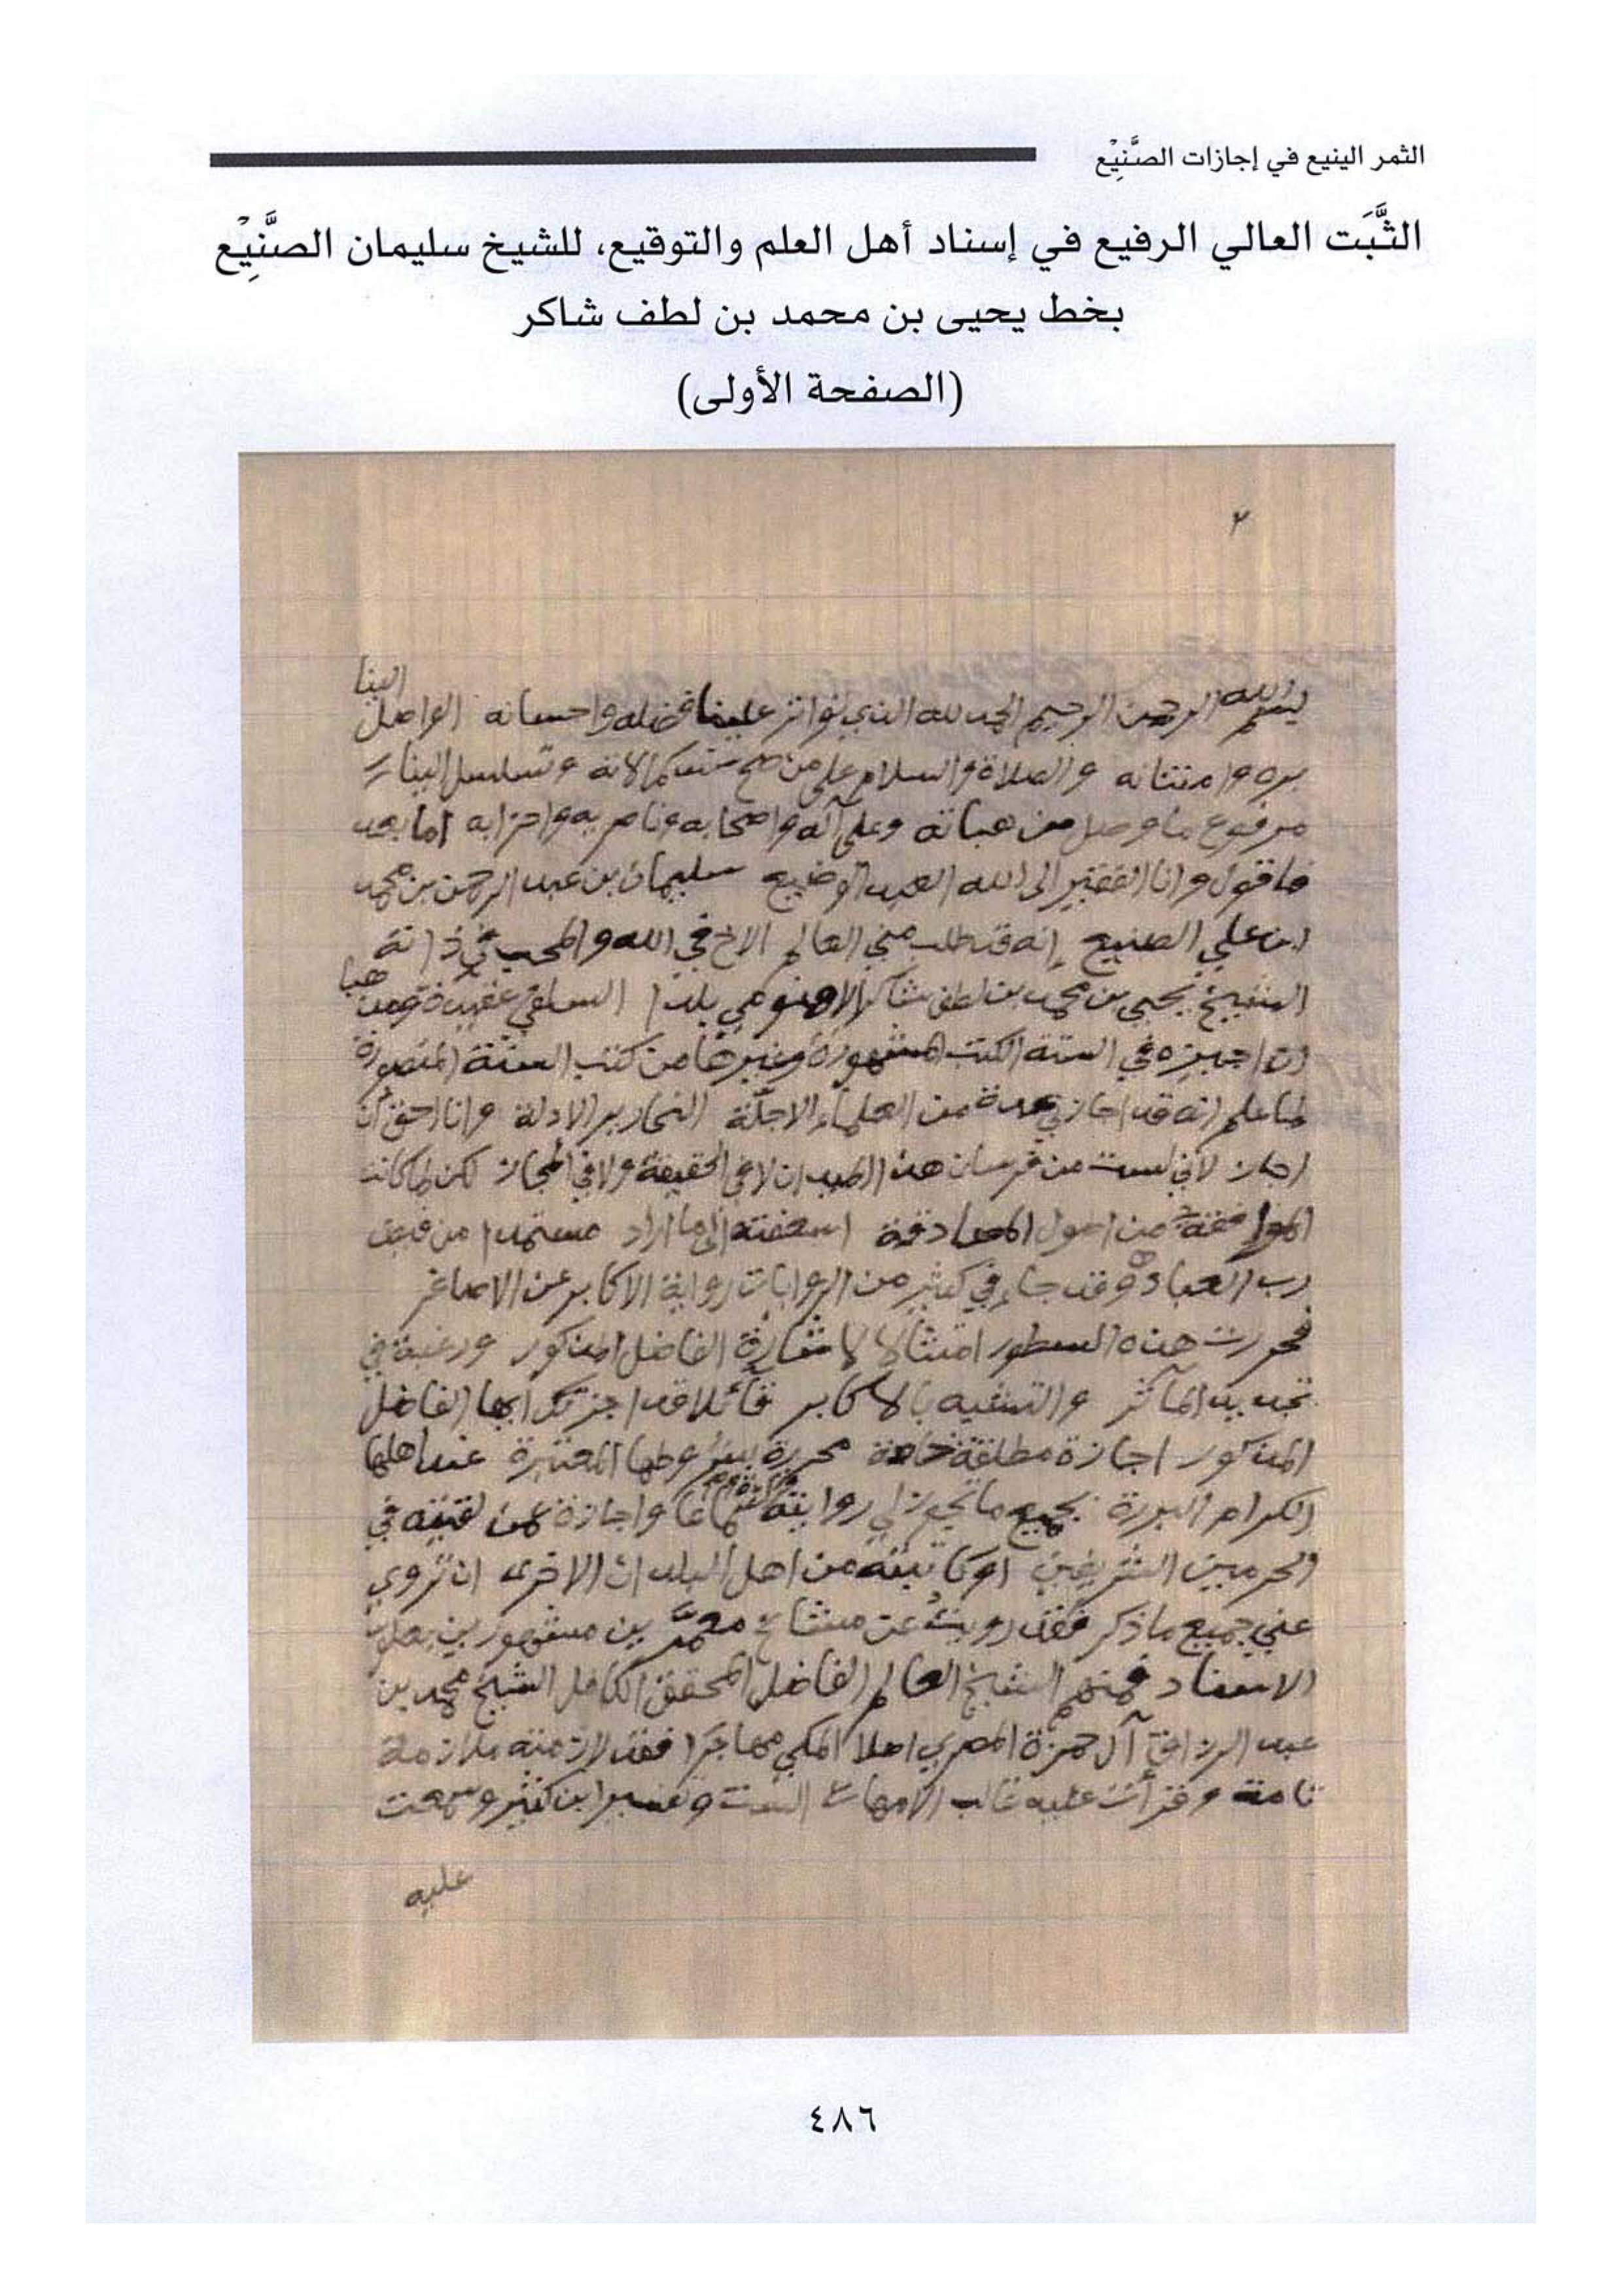 الثمر الينيع في إجازات الصَّنِيْع
الثَّبَت العالي الرفيع في إسناد أهل العلم والتوقيع، للشيخ سليمان الصَّنِيْع
بخط يحيى بن محمد بن لطف شاكر
(الصفحة الأولى)
٢
بسم الله الرحمن الرحيم الحمد لله الذي تواتر علينا فضله واحسانه الواصل الينا
بره وامتنانه والصلاة والسلام على من صح سند كمالاته وتسلسل الينا
مرفوع ما وصل من هباته وعلى آله واصحابه وناصريه واحزابه اما بعد
فاقول وانا الفقير الى الله العبد الوضيع سليمان بن عبد الرحمن بن محمد
ابن علي الصنيع إنه قد طلب مني العالم الاخ في الله والمحب في ذاته
الشيخ يحيى بن محمد بن لطف شاكر الاهنومي بلدا السلفي عقيدة ومذهبا
ان اجيزه في الستة الكتب المشهورة وغيرها من كتب السنة
لما علم انه قد اجازني عدة من العلماء الاجلّة النحارير الادلة وانا احق أن
اجاز لأني لست من فرسان هذا الميدان لا في الحقيقة ولا في المجاز لكن لما كانت
الموافقة من اصول المصادقة اسعفته الى ما اراد مستمدا من فيض
رب العباد وقد جاء في كثير من الروايات رواية الاكابر عن الاصاغر
فحررت هذه السطور امتثالا لاشارة الفاضل المذكور ورغبة في
تجديد المآثر والتشبه بالاكابر قائلا قد اجزتك ايها الفاضل
المذكور اجازة مطلقة خاصة محررة بشروطها المعتبرة عند اهلها
الكرام البررة بجميع ما تجوز لي روايته سماعا واجازة عمن لقيته في
الحرمين الشريفين او كاتبته من اهل البلدان الاخرى ان تروي
عني جميع ما ذكر فقد رويت عن مشائخ معمَّرين مشهورين بعلو
الاسناد فمنهم الشيخ العالم الفاضل المحقق الكامل الشيخ محمد بن
عبد الرزاق آل حمزة المصري اصلا المكي مهاجَرا فقد لازمته ملازمة
تامة وقرأت عليه غالب الامهات الست وتفسير ابن كثير وسمعت
عليه
٤٨٦